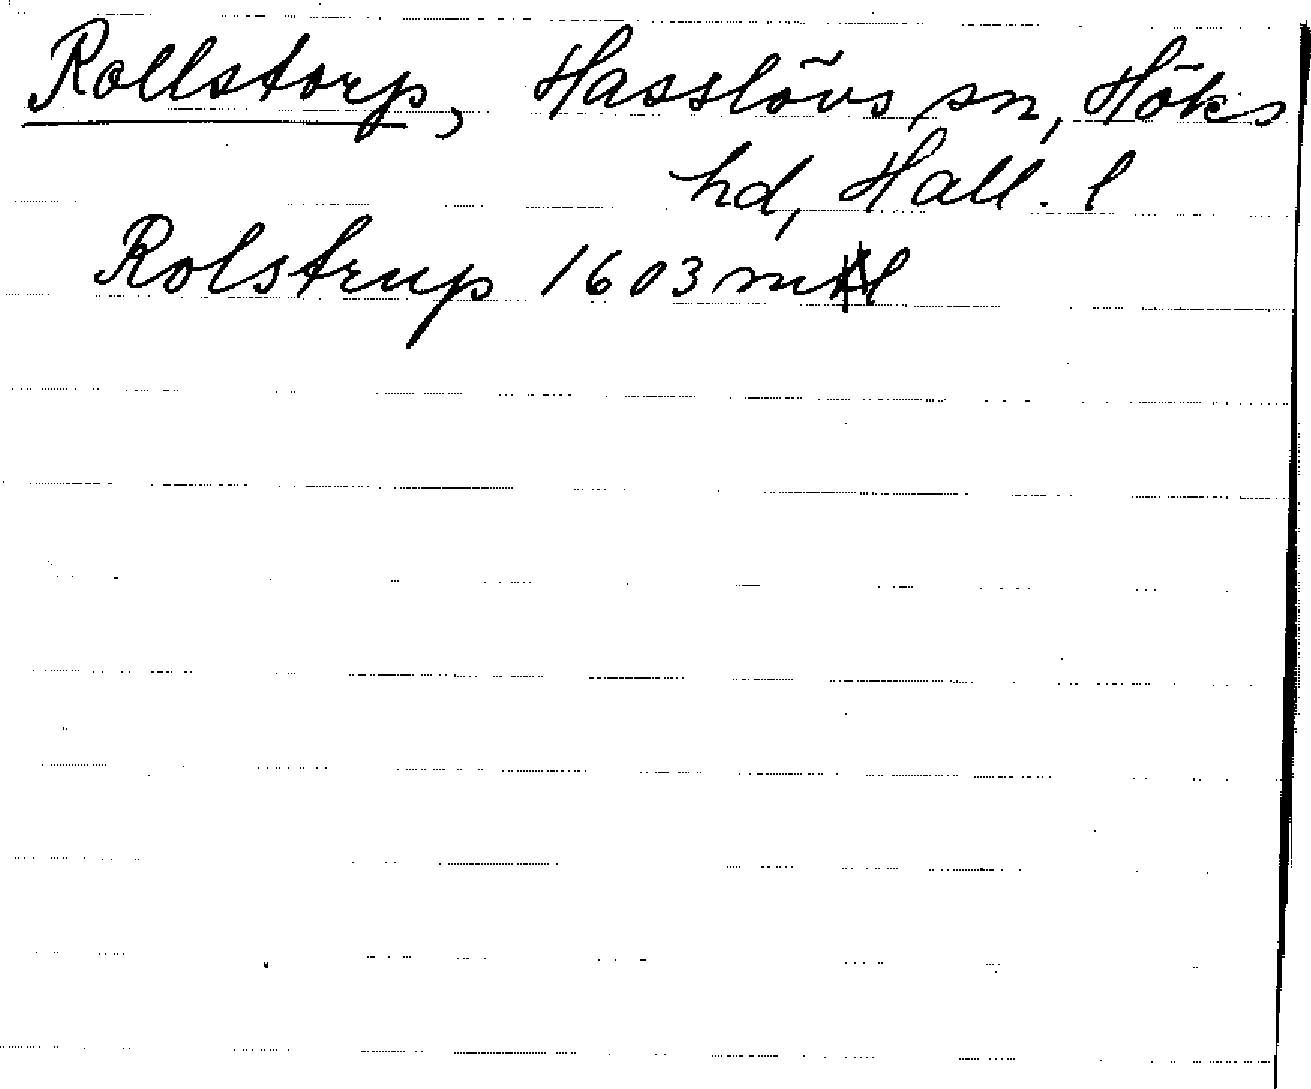 Rollstorp, Hasslövs sn, Höks
hd, Hall. l
Rolstrup 1603